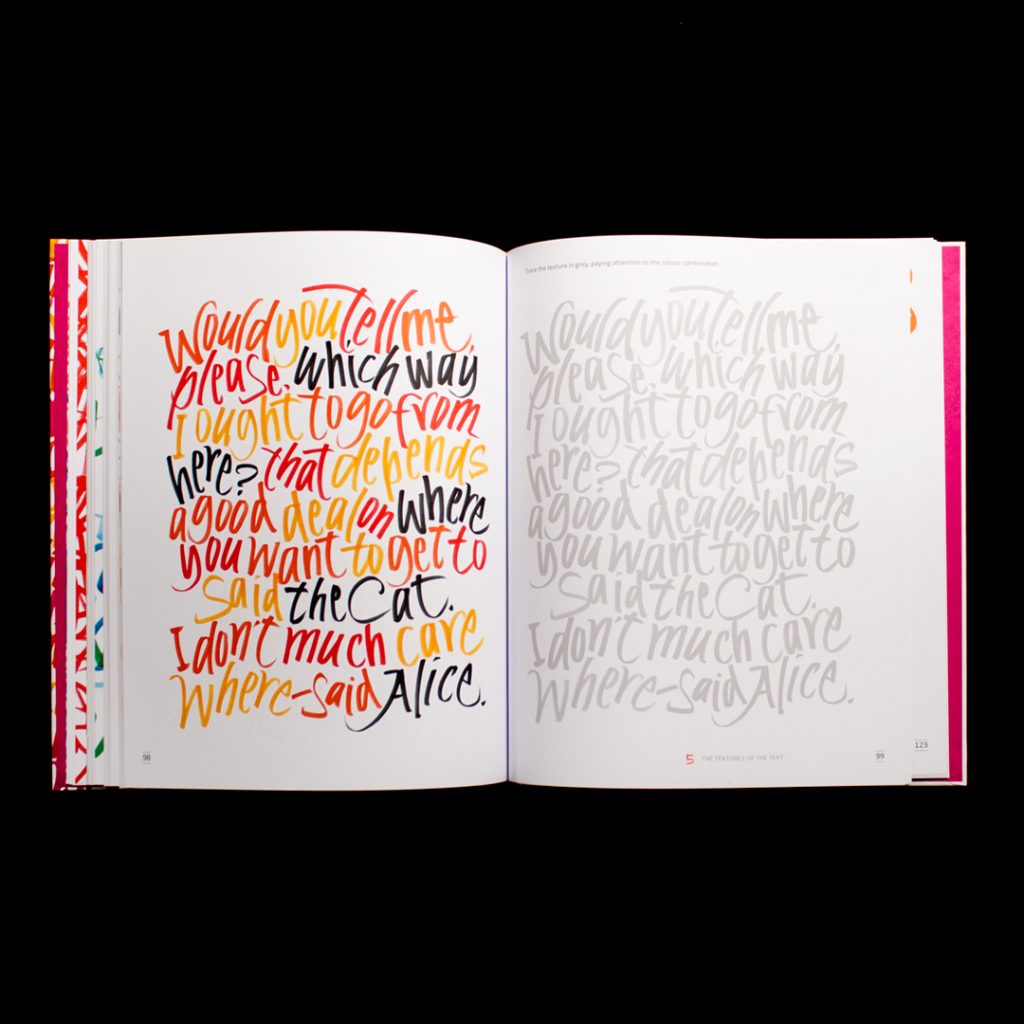 Would you tell me,
please, which way
I ought to go from
here? that depends
a good deal on where
you want to get to
said the Cat.
I don't much care
where-said Alice.
98
Trace the texture in grey, paying attention to the colour combination.
Would you tell me,
please, which way
I ought to go from
here? that depends
a good deal on where
you want to get to
said the Cat.
I don't much care
where-said Alice.
5 THE TEXTURES OF THE TEXT
99
123